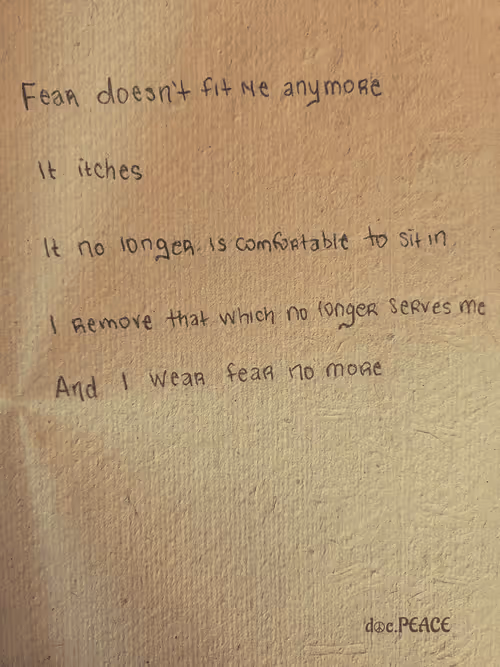 Fear doesn't fit me anymore
It itches
It no longer is comfortable to sit in
I remove that which no longer serves me
And I wear fear no more
doc.PEACE